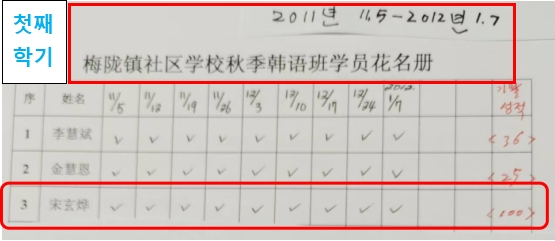 첫째
학기
2011년 11.5-2012년 1.7
梅陇镇社区学校秋季韩语班学员花名册
序 姓名 11/5 11/12 11/19 11/26 12/3 12/10 12/17 12/24 2012. 1/7 기말 성적
1 李慧斌 ✓ ✓ ✓ ✓ ✓ ✓ ✓ ✓ ✓ <36>
2 金慧恩 ✓ ✓ ✓ ✓ ✓ ✓ ✓ ✓ ✓ <25>
3 宋玄烨 ✓ ✓ ✓ ✓ ✓ ✓ ✓ ✓ ✓ <100>